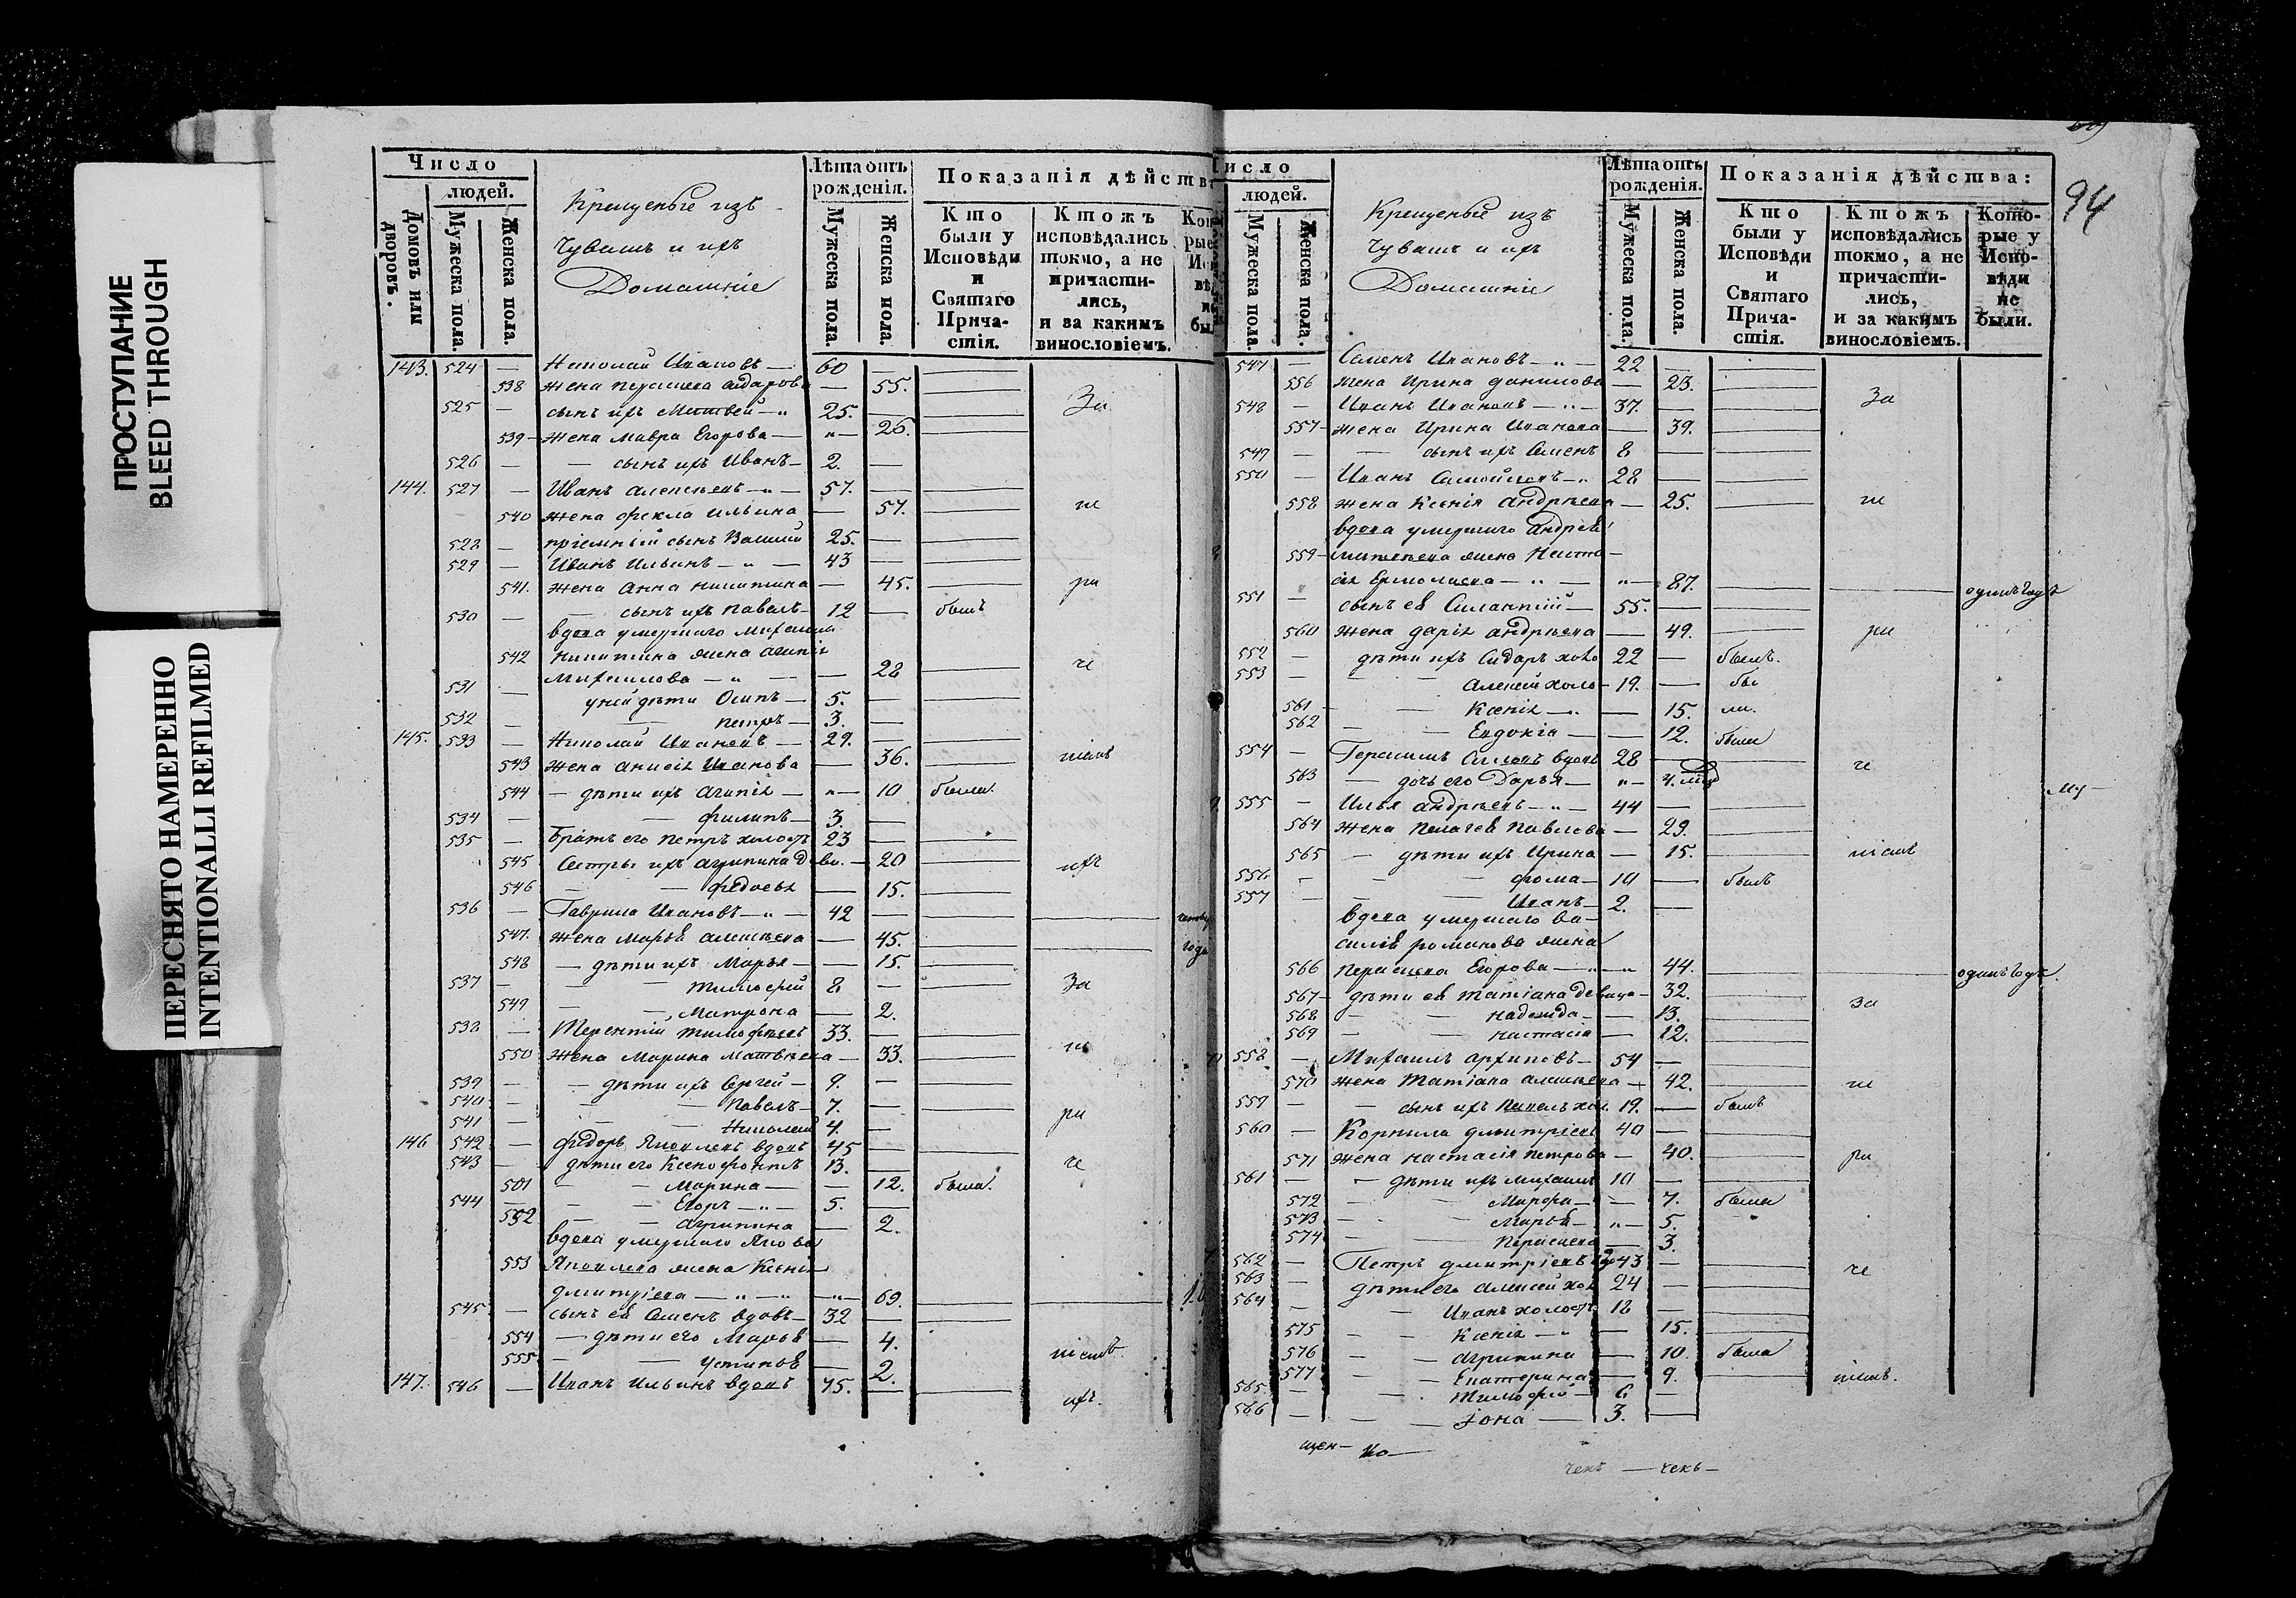 ПРОСТУПАНИЕ
BLEED THROUGH
ПЕРЕСНЯТО НАМЕРЕННО
INTENTIONALLI REFILMED
Число
людей.
Домовъ или дворовъ.
Мужеска пола.
Женска пола.
Крещеные изъ
Чувашъ и ихъ
Домашніе
Лѣта отъ
рожденія.
Мужеска пола.
Женска пола.
Показанія дѣйств
Кто
были у
Исповѣди
и
Святаго
Прича-
стія.
Ктожъ
исповѣдались
токмо, а не
причасти-
лись,
и за какимъ
винословіемъ.
143. 524 — Николай Ивановъ — 60 —
538 жена Параскева — 55.
525 — сынъ ихъ Матвей — 25. — За
539 — жена Мавра Егорова — 26.
526 — — сынъ ихъ Иванъ — 2. —
144. 527 — Иванъ Алексѣевъ — 57. —
540 жена Фекла Ильина — 57. не
528 — пріемный сынъ Василій 25. —
529 — Иванъ Ильинъ — 43 —
541. жена Анна Никитина — 45. ра
530 — — сынъ ихъ Павелъ — 12 — былъ
вдова умершаго Михаила
542 Никитина жена
Михаилова — 28 че
531 — у ней дѣти Осипъ — 5. —
532 — — Петръ — 3. —
145. 533 — Николай Ивановъ — 29. —
543 жена Анисія Иванова — 36. ніемъ
544 — дѣти ихъ Агапія — 10 была.
534 — — Филипъ — 3. —
535 — Братъ его Петръ холостъ 23 —
545 Сестры ихъ Агрипина дев. — 20 ихъ
546 — — Федосья — 15.
536 — Гаврила Ивановъ — 42 —
547. жена Марья Алексѣева — 45.
548 — дѣти ихъ Марья — 15.
537 — — Тимофей 8 — За
549 — — Матрона — 2.
538 — Терентій Тимофѣевъ 33. —
550 жена Марина Матвѣева — 33. не
539 — — дѣти ихъ Сергей — 9. —
540 — — Павелъ — 7. — ра
541 — — Николай 4. —
146 542 — Федоръ Яковлевъ вдовъ 45 —
543 — дѣти его Ксенофонтъ 13. — че
501 — — Марина — 12. была.
544 — — Егоръ — 5. —
552 — — Агрипина — 2.
вдова умершаго Якова
553 Яковлева жена Ксенія
Дмитріева — 69.
545 — сынъ ея Семенъ вдовъ — 32 —
554 — дѣти его Марья — 4. ніемъ
555 — — Устинья — 2.
147. 546 — Иванъ Ильинъ вдовъ 75. — ихъ.
94
людей.
Мужеска пола.
Женска пола.
Крещеные изъ
Чувашъ и ихъ
Домашніе
Лѣта отъ
рожденія.
Мужеска пола.
Женска пола.
Показанія дѣйства:
Кто
были у
Исповѣди
и
Святаго
Прича-
стія.
Ктожъ
исповѣдались
токмо, а не
причасти-
лись,
и за какимъ
винословіемъ.
Кото-
рые у
Испо-
вѣди
не
были.
547 — Семенъ Ивановъ — 22 —
556 жена Ирина Данилова — 23. За
548 — Иванъ Ивановъ — 37. —
557 — жена Ирина Иванова — 39.
549 — — сынъ ихъ Семенъ 8 —
550 — Иванъ Самойловъ — 28
558 жена Ксенія Андрѣева — 25. не
вдова умершаго Андрея
559 — жена Наста-
сія Ермолаева — 87. одинъ годъ
551 — сынъ ея Силантій — 55. —
560 жена Дарія Андрѣева — 49. ра
552 — дѣти ихъ Сидаръ холо 22 — былъ.
553 — — Алексей холо — 19. — бы
561 — — Ксенія — 15. ли.
562 — — Евдокіа — 12. была
554 — Герасимъ вдовъ 28 че
563 — дочь его Дарья —
555 — Илья Андрѣевъ — 44 —
564 жена Пелагея Павлова — 29.
565 — дѣти ихъ Ирина — 15. ніемъ
556 — — Фома — 10 — былъ
557 — — Иванъ — 2. —
вдова умершаго Ва-
силія Романова жена
566 Параскева Егорова — 44. одинъ годъ.
567 — дѣти ея Татіана девица — 32. за
568 — — Надежда — 13.
569 — — Настасія — 12.
558 — Михаилъ Архиповъ — 54 —
570 жена Татіана Алексѣева — 42. не
559 — — сынъ ихъ Павелъ хол. 19. — былъ
560 — Корнила Дмитріевъ 40 —
571 жена Настасія Петрова — 40. ра
561 — — дѣти ихъ Михаилъ 10 —
572 — — — 7. была
573 — — Марья — 5.
574 — — Параскева — 3.
562 — Петръ Дмитріевъ 43 — че
563 — дѣти его Алексей хол 24 —
564 — — Иванъ холостъ 18 —
575 — — Ксенія — 15.
576 — — Агрипина — 10. была
577 — — Екатерина — 9. ніемъ.
565 — — Тимофей — 6 —
566 — — Іона — 3. —